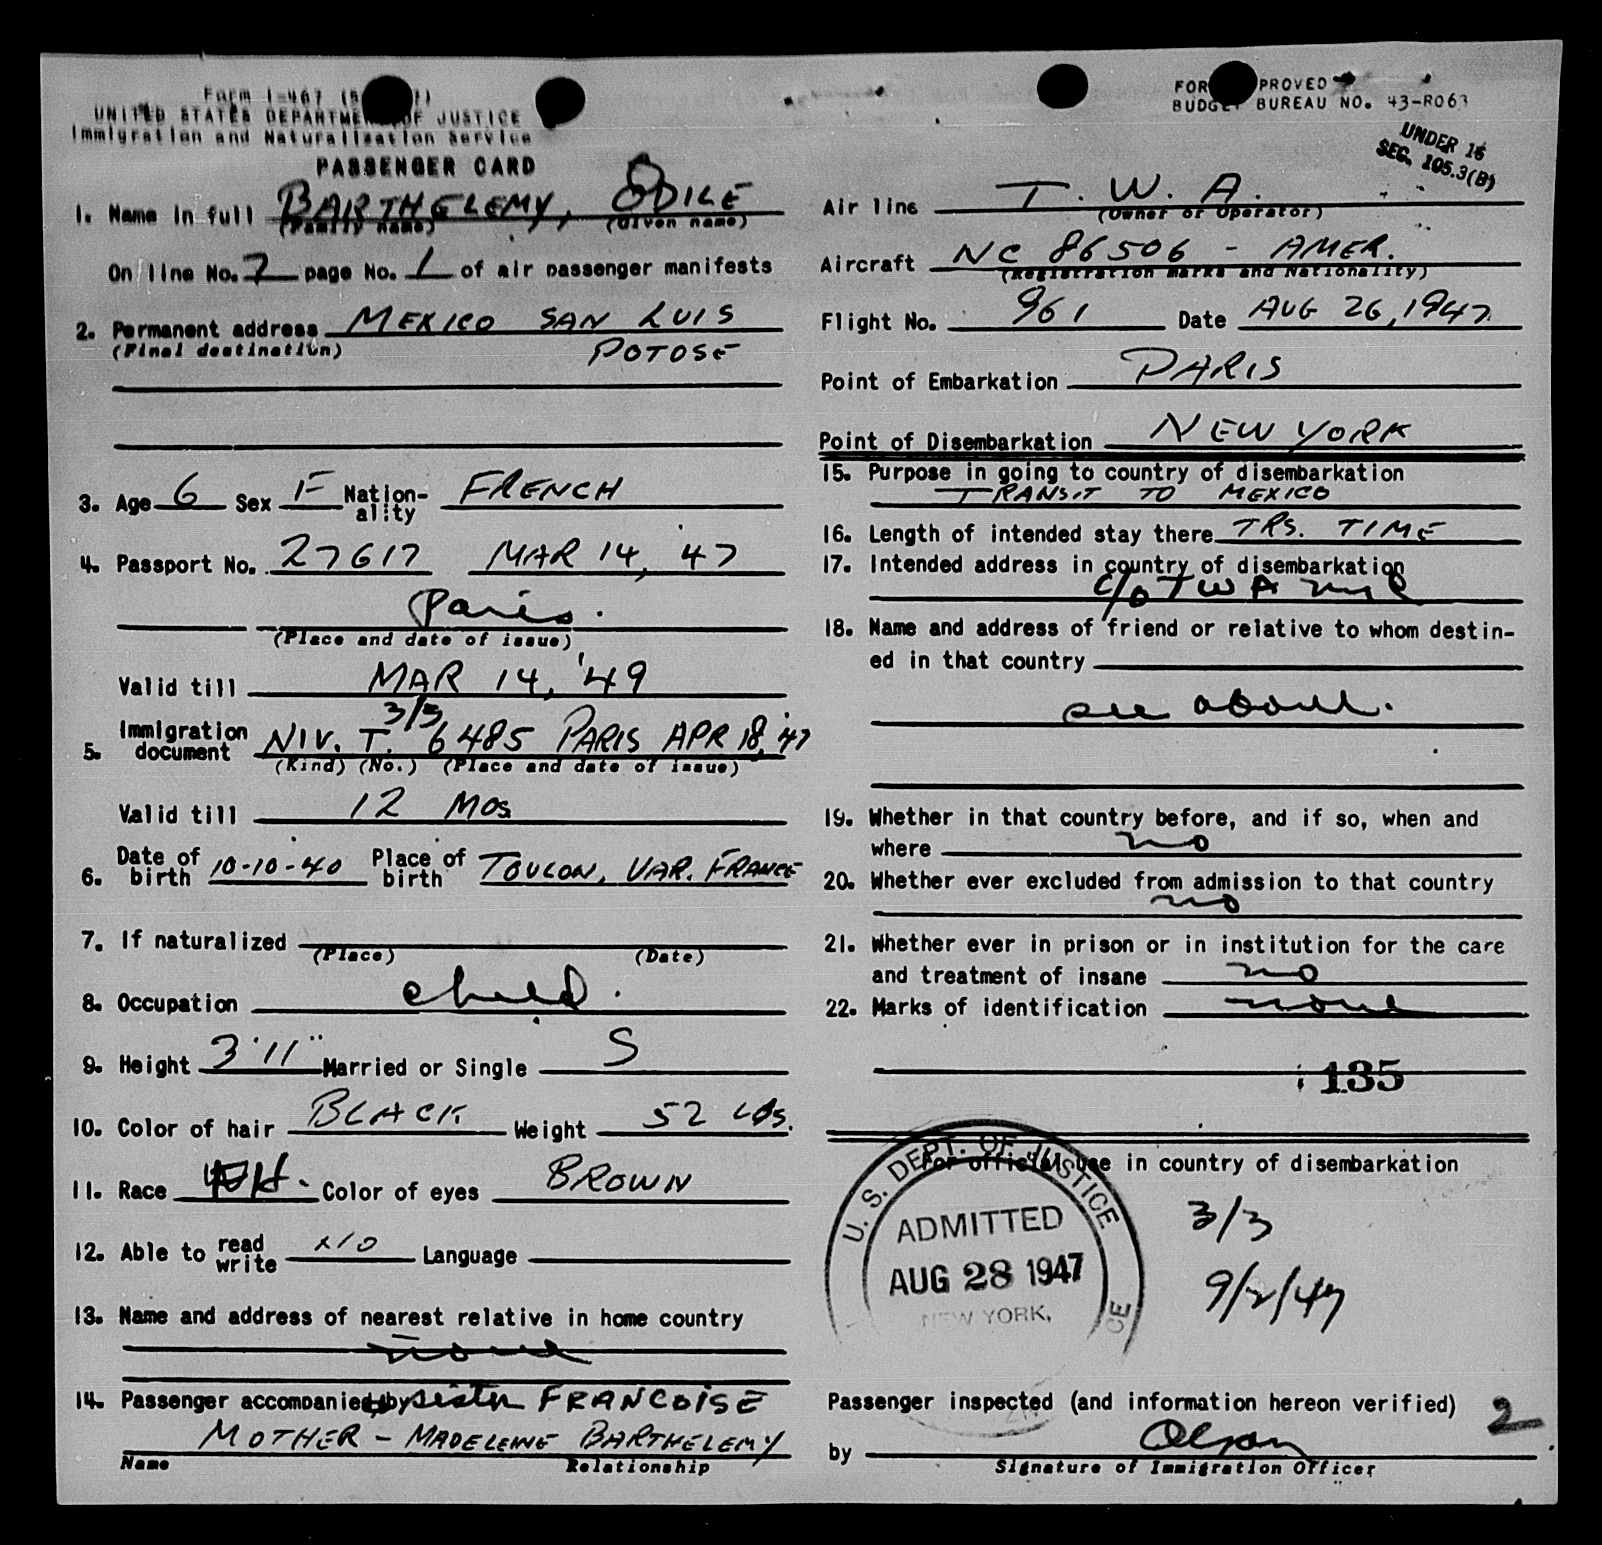 Form I-467
UNITED STATES DEPARTMENT OF JUSTICE
Immigration and Naturalization Service
PASSENGER CARD
1. Name in full BARTHELEMY, ODILE
(Family name) (Given name)
On line No. 7 page No. 1 of air passenger manifests
2. Permanent address MEXICO SAN LUIS
(Final destination) POTOSE
3. Age 6 Sex F Nation-ality FRENCH
4. Passport No. 27617 MAR 14, '47
Paris.
(Place and date of issue)
Valid till MAR 14, '49
3/3
5. Immigration document NIV. T. 6485 PARIS APR 18, '47
(Kind) (No.) (Place and date of issue)
Valid till 12 MOS
6. Date of birth 10-10-40 Place of birth TOULON, VAR. FRANCE
7. If naturalized
(Place) (Date)
8. Occupation child.
9. Height 3'11" Married or Single S
10. Color of hair BLACK Weight 52 Lbs.
11. Race Color of eyes BROWN
12. Able to read write NO Language
13. Name and address of nearest relative in home country
none
14. Passenger accompanied by sister FRANCOISE
MOTHER - MADELEINE BARTHELEMY
Name Relationship
FORM APPROVED
BUDGET BUREAU NO. 43-R063
UNDER 16
SEC. 105.3(B)
Air line T. W. A.
(Owner or Operator)
Aircraft NC 86506 - AMER.
(Registration marks and Nationality)
Flight No. 961 Date AUG 26, 1947
Point of Embarkation PARIS
Point of Disembarkation NEW YORK
15. Purpose in going to country of disembarkation
TRANSIT TO MEXICO
16. Length of intended stay there TRS. TIME
17. Intended address in country of disembarkation
c/o TWA nyc
18. Name and address of friend or relative to whom destin-
ed in that country
see above.
19. Whether in that country before, and if so, when and
where no
20. Whether ever excluded from admission to that country
no
21. Whether ever in prison or in institution for the care
and treatment of insane no
22. Marks of identification none
135
For official use in country of disembarkation
U. S. DEPT. OF JUSTICE
ADMITTED
AUG 28 1947
NEW YORK,
3/3
9/2/47
Passenger inspected (and information hereon verified) 2
by Olson
Signature of Immigration Officer